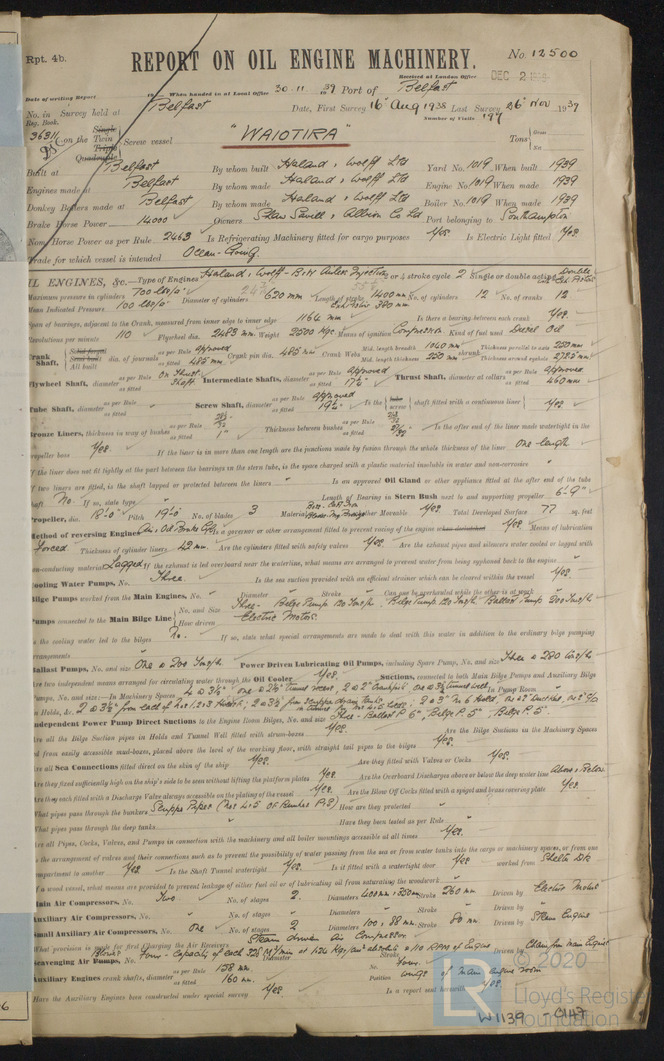 Rpt. 4b.
REPORT ON OIL ENGINE MACHINERY.
No. 12500
Received at London Office
DEC 2
Date of writing Report 19 When handed in at Local Office 30-11 1939 Port of Belfast
No. in Survey held at Belfast Date, First Survey 16th Aug 1938 Last Survey 26th Nov 1939
Reg. Book. Number of Visits 197
36311 on the Single Twin Triple Quadruple Screw vessel "WAIOTIRA" Tons Gross Net
Built at Belfast By whom built Harland & Wolff Ltd Yard No. 1019 When built 1939
Engines made at Belfast By whom made Harland & Wolff Ltd Engine No. 1019 When made 1939
Donkey Boilers made at Belfast By whom made Harland & Wolff Ltd Boiler No. 1019 When made 1939
Brake Horse Power 14000 Owners Shaw Savill & Albion Co Ltd Port belonging to Southampton
Nom. Horse Power as per Rule 2463 Is Refrigerating Machinery fitted for cargo purposes Yes Is Electric Light fitted Yes
Trade for which vessel is intended Ocean-Going
OIL ENGINES, &c.—Type of Engines Harland & Wolff-B&W Airless Injection 2 or 4 stroke cycle 2 Single or double acting Double
Maximum pressure in cylinders 700 lbs/□" Diameter of cylinders 620 mm Length of stroke 1400 mm No. of cylinders 12 No. of cranks 12
Mean Indicated Pressure 100 lbs/□" Exh. Pistons 380 mm
Span of bearings, adjacent to the Crank, measured from inner edge to inner edge 1164 mm Is there a bearing between each crank Yes
Revolutions per minute 110 Flywheel dia. 2483 mm Weight 2600 Kgs Means of ignition Compression Kind of fuel used Diesel Oil
Crank Shaft, Solid forged Semi built All built dia. of journals as per Rule approved as fitted 485 mm Crank pin dia. 485 mm Crank Webs Mid. length breadth 1040 mm Mid. length thickness 250 mm shrunk Thickness parallel to axis 250 mm Thickness around eyehole 278.5 mm
Flywheel Shaft, diameter as per Rule on Thrust as fitted Shaft Intermediate Shafts, diameter as per Rule approved as fitted 17½" Thrust Shaft, diameter at collars as per Rule approved as fitted 460 mm
Tube Shaft, diameter as per Rule as fitted Screw Shaft, diameter as per Rule approved as fitted 19½" Is the tube screw shaft fitted with a continuous liner Yes
Bronze Liners, thickness in way of bushes as per Rule as fitted 1" Thickness between bushes as per Rule as fitted Is the after end of the liner made watertight in the
propeller boss Yes If the liner is in more than one length are the junctions made by fusion through the whole thickness of the liner One length
If the liner does not fit tightly at the part between the bearings in the stern tube, is the space charged with a plastic material insoluble in water and non-corrosive "
If two liners are fitted, is the shaft lapped or protected between the liners " Is an approved Oil Gland or other appliance fitted at the after end of the tube
shaft No If so, state type Length of Bearing in Stern Bush next to and supporting propeller 6'-9"
Propeller, dia. 18'-0" Pitch 19'-0" No. of blades 3 Material Boss-Cast Iron Moveable Yes Total Developed Surface 77 sq. feet
Method of reversing Engines Is a governor or other arrangement fitted to prevent racing of the engine when declutched Yes Means of lubrication
Forced Thickness of cylinder liners 42 mm Are the cylinders fitted with safety valves Yes Are the exhaust pipes and silencers water cooled or lagged with
non-conducting material Lagged If the exhaust is led overboard near the waterline, what means are arranged to prevent water from being syphoned back to the engine "
Cooling Water Pumps, No. Three Is the sea suction provided with an efficient strainer which can be cleared within the vessel Yes
Bilge Pumps worked from the Main Engines, No. Diameter Stroke Can one be overhauled while the other is at work
Pumps connected to the Main Bilge Line No. and Size Three - Bilge Pump 120 Tons/hr. Bilge Pump 120 Tons/hr. Ballast Pump 200 Tons/hr.
How driven Electric Motors
Is the cooling water led to the bilges No If so, state what special arrangements are made to deal with this water in addition to the ordinary bilge pumping
arrangements
Ballast Pumps, No. and size One @ 200 Tons/hr Power Driven Lubricating Oil Pumps, including Spare Pump, No. and size Three @ 280
Are two independent means arranged for circulating water through the Oil Cooler Yes Suctions, connected to both Main Bilge Pumps and Auxiliary Bilge
Pumps, No. and size:—In Machinery Spaces 4 @ 3½" one @ 2½" tunnel recess, 2 @ 2" one @ 3½" tunnel well In Pump Room
In Holds, &c. 2 @ 3½" from each of
Independent Power Pump Direct Suctions to the Engine Room Bilges, No. and size Three - Ballast P. 6", Bilge P. 5", Bilge P. 5"
Are all the Bilge Suction pipes in Holds and Tunnel Well fitted with strum-boxes Yes Are the Bilge Suctions in the Machinery Spaces
led from easily accessible mud-boxes, placed above the level of the working floor, with straight tail pipes to the bilges Yes
Are all Sea Connections fitted direct on the skin of the ship Yes Are they fitted with Valves or Cocks Yes
Are they fixed sufficiently high on the ship's side to be seen without lifting the platform plates Yes Are the Overboard Discharges above or below the deep water line Above & Below
Are they each fitted with a Discharge Valve always accessible on the plating of the vessel Yes Are the Blow Off Cocks fitted with a spigot and brass covering plate Yes
What pipes pass through the bunkers Scupper Pipes How are they protected "
What pipes pass through the deep tanks " Have they been tested as per Rule "
Are all Pipes, Cocks, Valves, and Pumps in connection with the machinery and all boiler mountings accessible at all times Yes
Is the arrangement of valves and their connections such as to prevent the possibility of water passing from the sea or from water tanks into the cargo or machinery spaces, or from one
compartment to another Yes Is the Shaft Tunnel watertight Yes Is it fitted with a watertight door Yes worked from Shelter Dk
If a wood vessel, what means are provided to prevent leakage of either fuel oil or of lubricating oil from saturating the woodwork "
Main Air Compressors, No. Two No. of stages 2 Diameters 400 mm & 350 mm Stroke 260 mm Driven by Electric Motors
Auxiliary Air Compressors, No. " No. of stages " Diameters " Stroke " Driven by "
Small Auxiliary Air Compressors, No. One No. of stages 2 Diameters 100 & 88 mm Stroke 80 mm Driven by Steam Engine
What provision is made for first Charging the Air Receivers Steam driven Air Compressor
Scavenging Air Pumps, No. Blowers Four - Capacity of each 328 M³/min at 1.24 Kgs/cm² absolute @ 110 RPM of Engine Diameter Stroke Driven by Chain from main Engine
Auxiliary Engines crank shafts, diameter as per Rule 158 mm as fitted 160 mm No. Four Position wings of main Engine room
Have the Auxiliary Engines been constructed under special survey Yes Is a report sent herewith Yes
© 2020
LR Lloyd's Register Foundation
W1139 - 0147